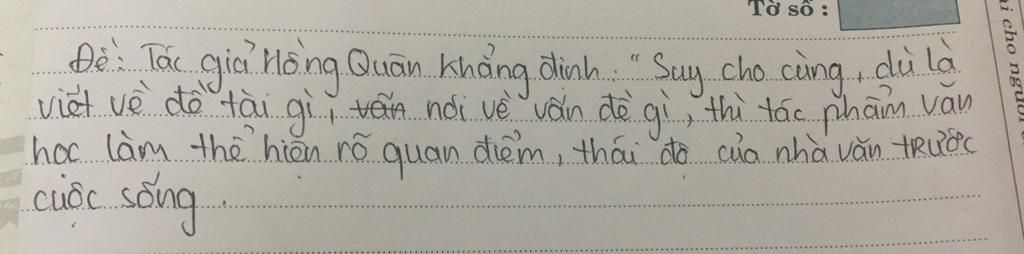 Tờ số :
Đề: Tác giả Hồng Quân khẳng định: "Suy cho cùng, dù là
viết về đề tài gì, văn nói về vấn đề gì, thì tác phẩm văn
học làm thể hiện rõ quan điểm, thái độ của nhà văn trước
cuộc sống.
i cho người